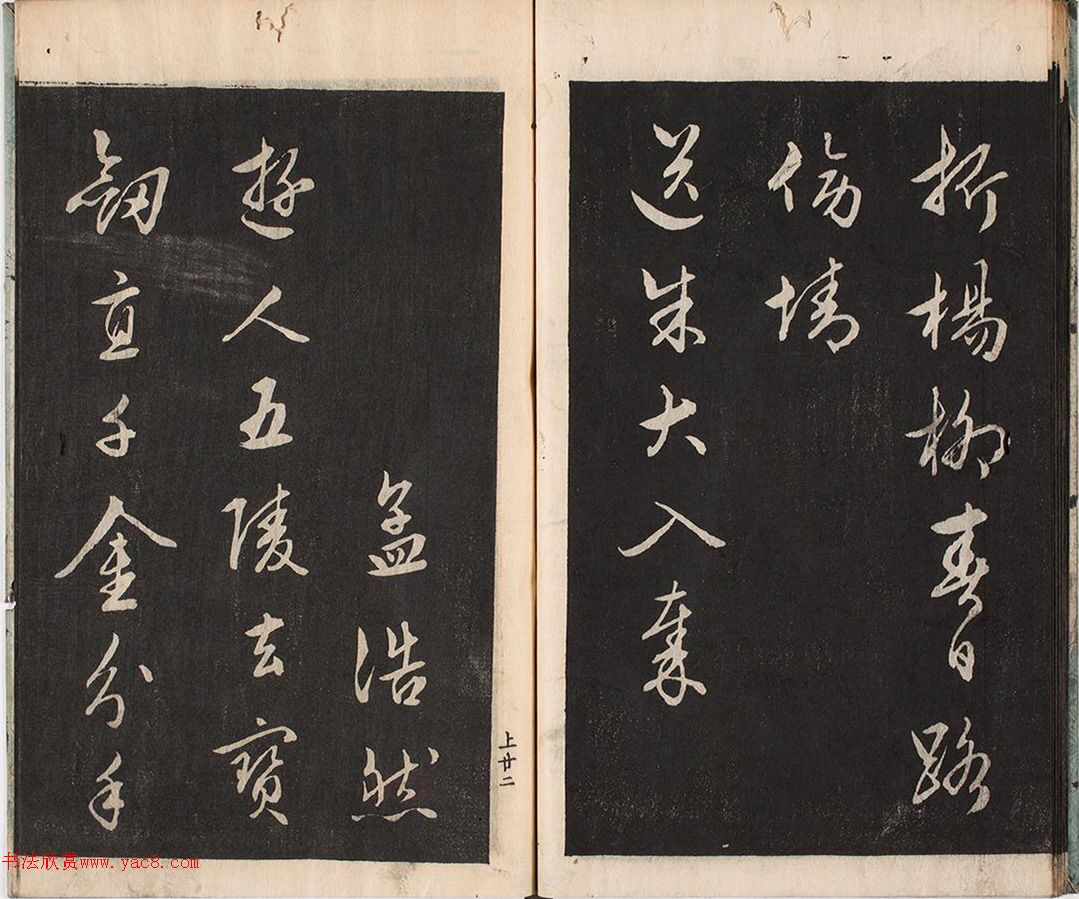 折楊柳春日路
傍情
送朱大入秦
孟浩然
遊人五陵去寶
劍直千金分手
上廿二
书法欣赏www.yac8.com